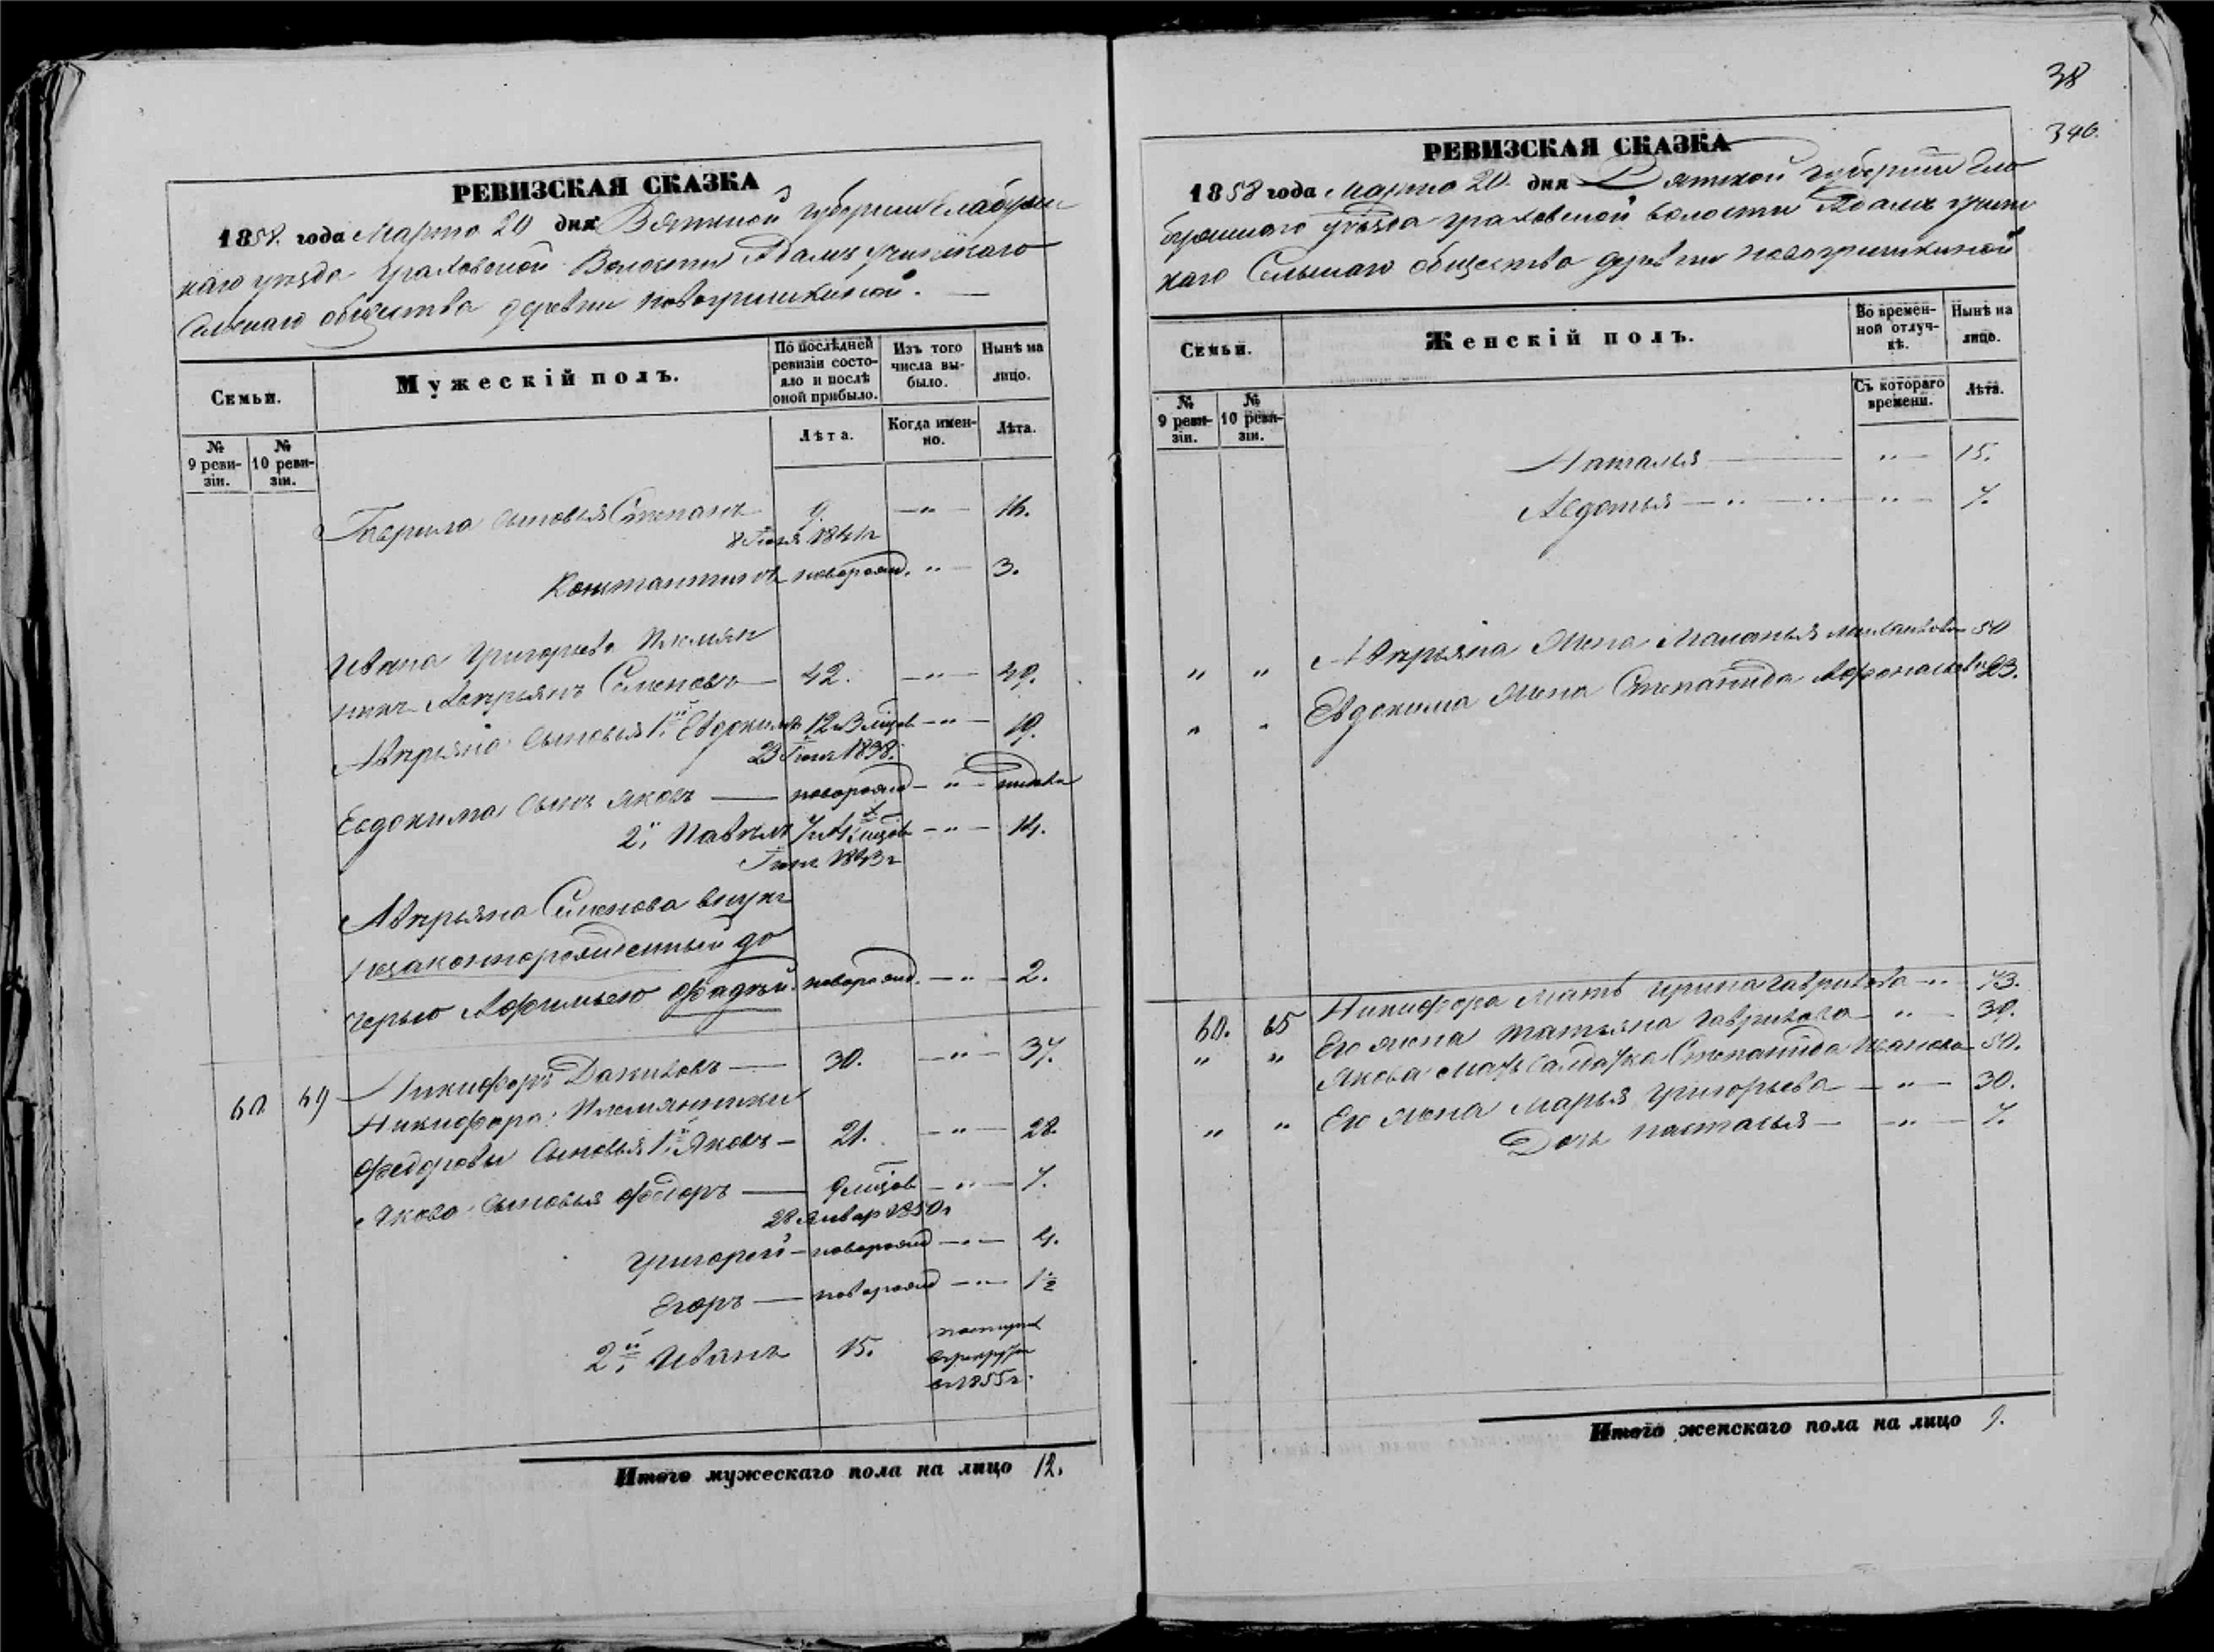 РЕВИЗСКАЯ СКАЗКА
1858. года Марта 20 дня Вятской губернии Елабужс-
каго уезда Граховской Волости Адамъ Учинскаго
Сельскаго общества деревни Новогришкиной.
Семьи.
Мужескій полъ.
По послѣдней ревизіи состо-яло и послѣ оной прибыло.
Изъ того числа вы-было.
Нынѣ на лицо.
№ 9 реви-зіи.
№ 10 реви-зіи.
Лѣта.
Когда имен-но.
Лѣта.
Гаврила сыновья Степанъ 9. — „ — 16.
Константинъ новорожд. „ — 3.
Ивана Григорьева Племян
никъ Аверьянъ Семеновъ — 42. — „ — 49.
Аверьяна сыновья 1й Евдокимъ 12 — „ — 19.
Евдокима сынъ Яковъ — новорожд — „ —
2й Павелъ — „ — 14.
1843г
Аверьяна Семенова внукъ
незаконнорожденный до
черью Афимьею Фадей новорожд. — „ — 2.
60 64 Никифоръ Даниловъ — 30. — „ — 37.
Никифора Племянники
Федоровы сыновья 1й Яковъ — 21. — „ — 28.
Якова сыновья Федоръ — 9 мѣсяцов — „ — 7.
28 Январ 1850г
Григорей — новорожд — „ — 4.
Егоръ — новорожд — „ — 1½
2й Иванъ 15. поступил
в рекруты
въ 1855г.
Итого мужескаго пола на лицо 12.
38
346.
РЕВИЗСКАЯ СКАЗКА
1858 года Марта 20 дня Вятской губернии Ела
бужскаго уѣзда Граховской волости Адамъ Учинс
каго Сельскаго общества деревни Новогришкиной
Семьи.
Женскій полъ.
Во времен-ной отлуч-кѣ.
Нынѣ на лицо.
№ 9 реви-зіи.
№ 10 реви-зіи.
Съ котораго времени.
Лѣта.
Наталья — „ — 15.
Авдотья — „ — „ — „ — 7.
„ „ Аверьяна Жена Маланья 50
„ „ Евдокима Жена Степанида Афонасьева 23.
60. 65 Никифора Мать Ирина Гаврилова — „ — 73.
„ „ Его жена Татьяна Гаврилова — „ — 39.
Якова Мать Салдатка Степанида Иванова 50.
„ „ Его жена Марья Григорьева — „ — 30.
Дочь Настасья — „ — 7.
Итого женскаго пола на лицо 9.